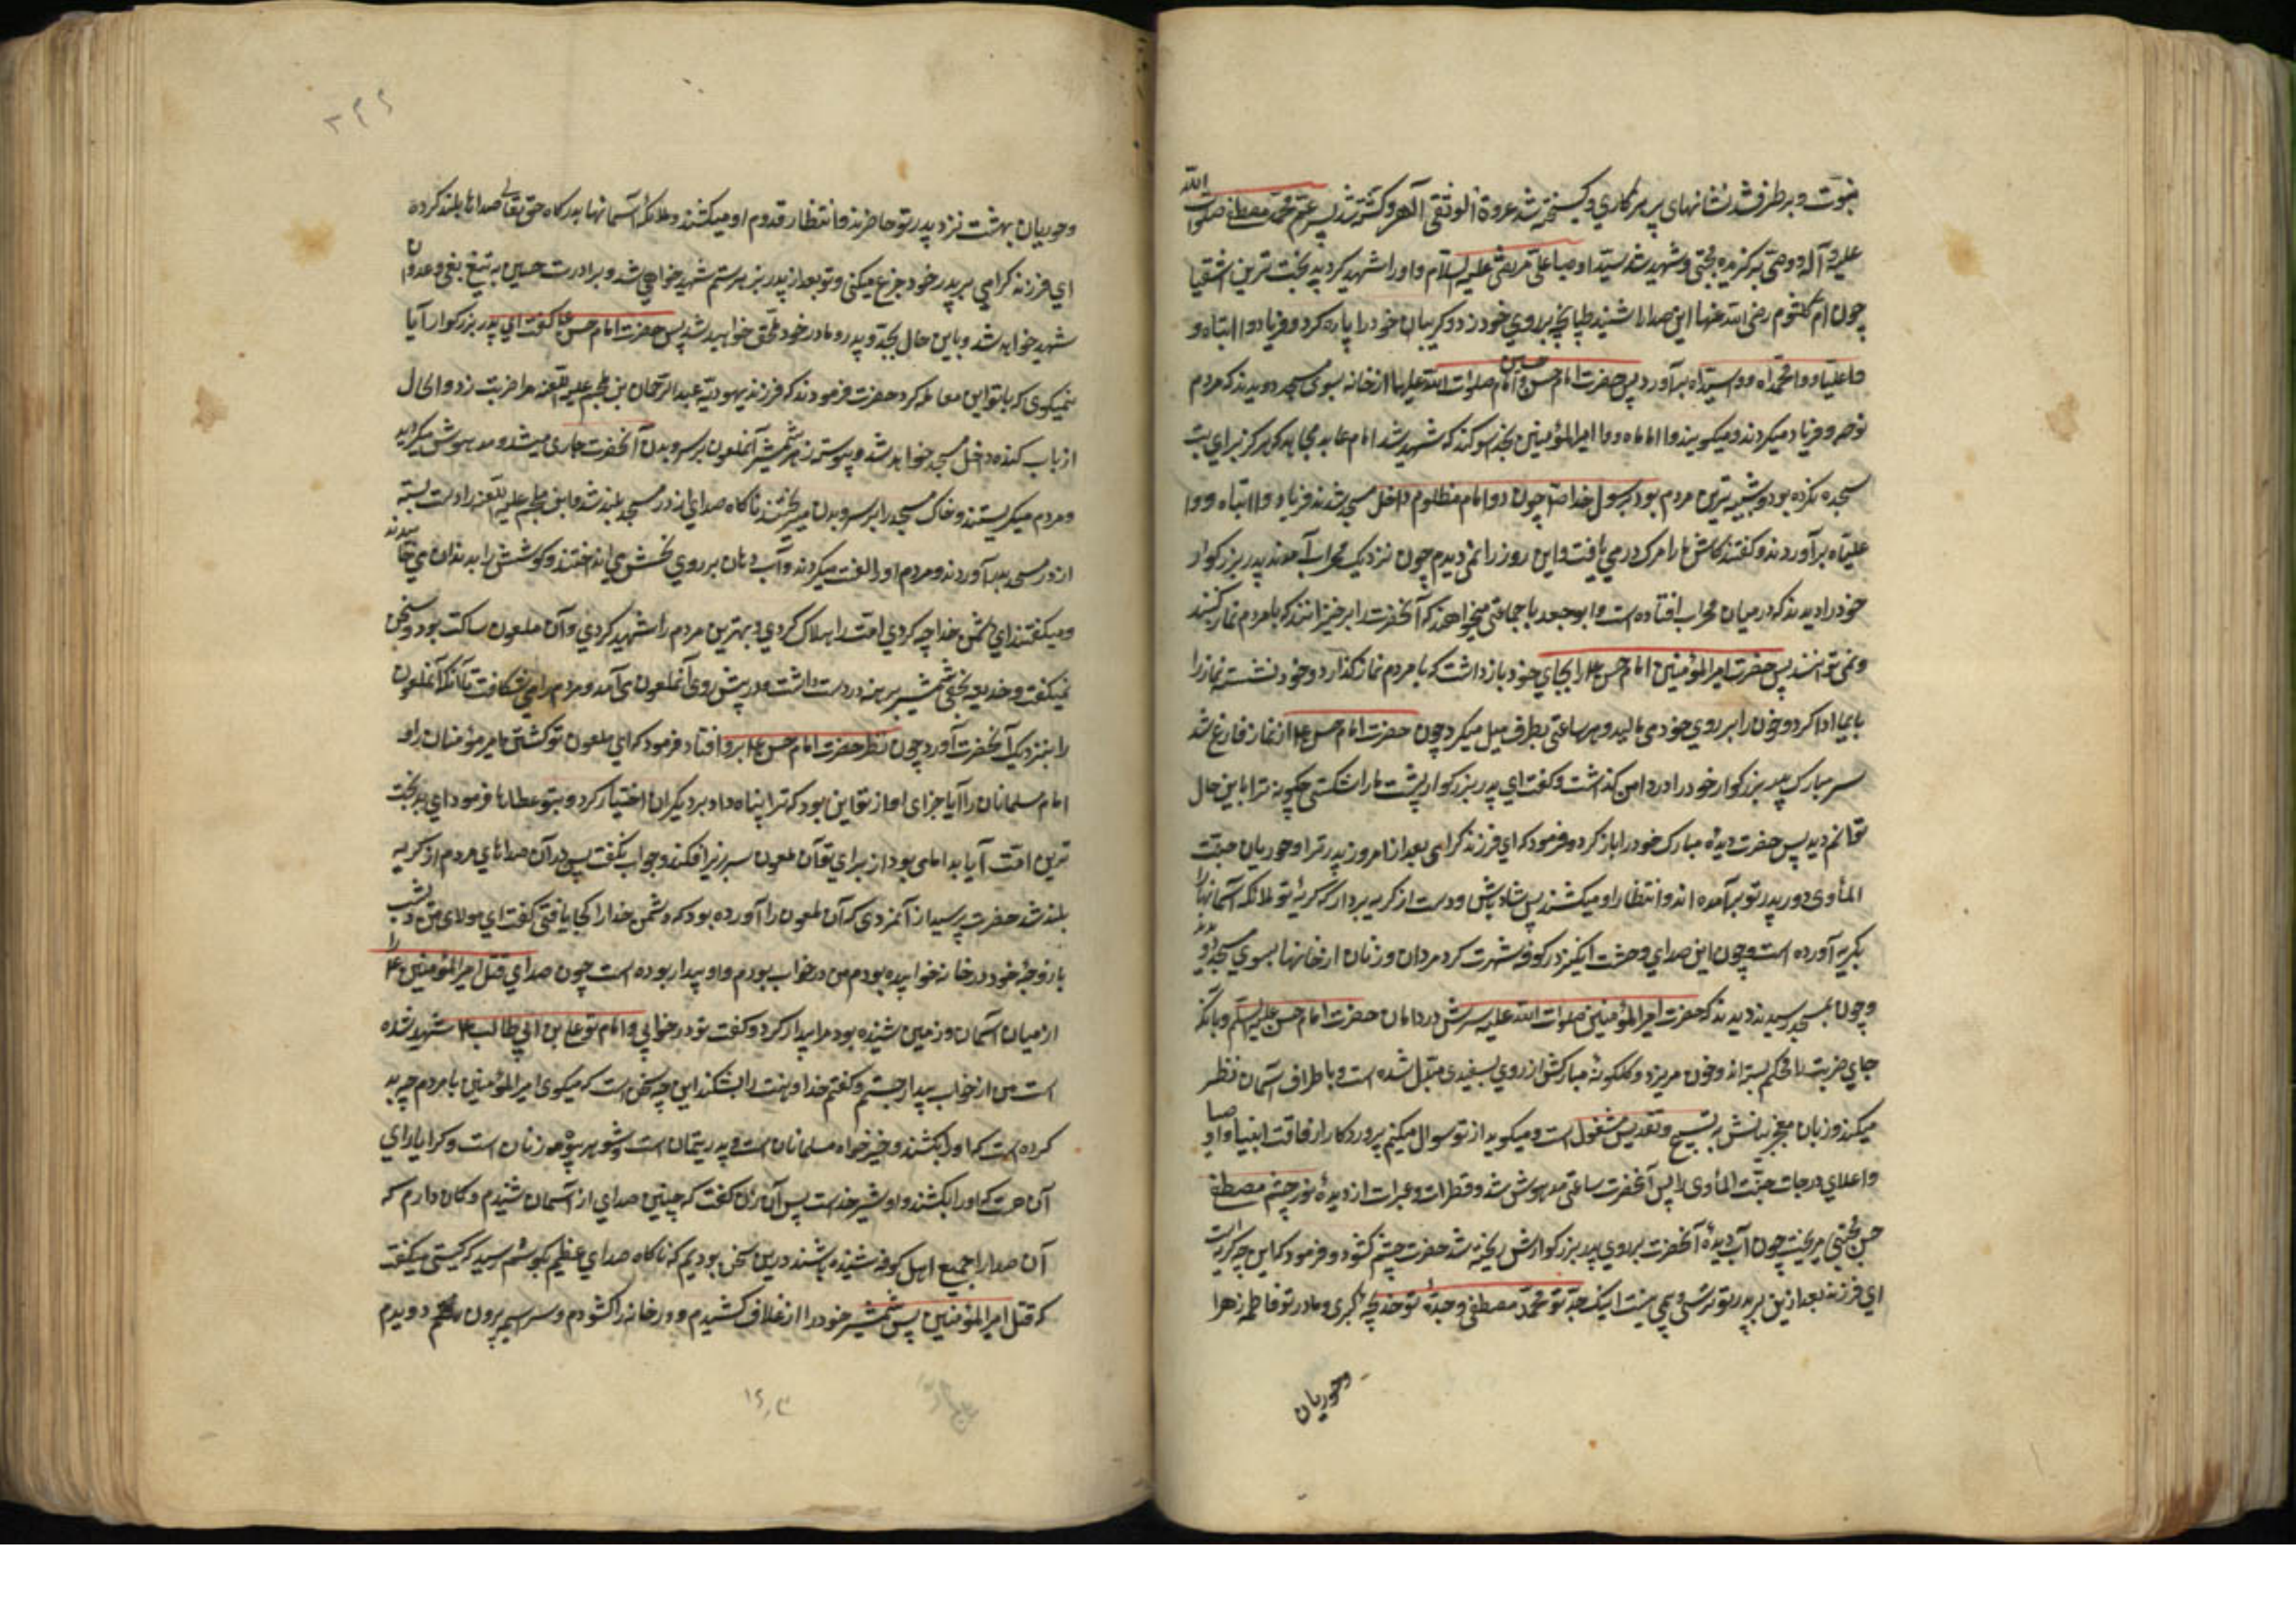 نبوت و برطرف شد نشانهای پرهیزکاری و گسیخته شد عروة الوثقی الهی و کشته شد پسر عم محمد مصطفی صلوات الله
علیه و آله و وصی برگزیده مجتبی و شهید شد سید اوصیا علی مرتضی علیه السلام و او را شهید کرد بدبخت ترین اشقیا
چون ام کلثوم رضی الله عنها این صدا را شنید طپانچه بر روی خود زد و گریبان خود را پاره کرد و فریاد وا ابتاه و
واعلیاه و وامحمداه و واسیداه برآورد پس حضرت امام حسن و امام حسین صلوات الله علیهما از خانه بسوی مسجد دویدند که مردم
نوحه و فریاد میکردند و میگویند وا اماماه و وا امیرالمؤمنین بخدا سوگند که شهید شد امام عابد مجاهد که هرگز برای بت
سجده نکرده بود و شبیه ترین مردم بود برسول خدا ص چون دو امام مظلوم داخل مسجد شدند فریاد وا ابتاه و وا
علیاه برآوردند و گفتند کاش ما را مرگ در می یافت و این روز را نمی دیدیم چون نزدیک محراب آمدند پدر بزرگوار
خود را دیدند که در میان محراب افتاده است و ابو جعده با جماعتی میخواهند که آنحضرت را برخیزانند که با مردم نماز کنند
و نمی توانند پس حضرت امیرالمؤمنین امام حسن ع را بجای خود بازداشت که با مردم نماز گذارد و خود نشسته نماز را
بایما ادا کرد و خون را بر روی خود می مالید و هر ساعتی بطرفی میل میکرد چون حضرت امام حسن ع از نماز فارغ شد
سر مبارک پدر بزرگوار خود را در دامن گذاشت و گفت ای پدر بزرگوار پشت ما را شکستی چگونه ترا باین حال
توانم دید پس حضرت دیده مبارک خود را باز کرد و فرمود که ای فرزند گرامی بعد از امروز پدر ترا و حوریان جنت
المأوی دور پدر تو برآمده اند و انتظار او میکشند پس شاد باش و دست از گریه بردار که گریه تو ملائکه آسمانها را
بگریه آورده است و چون این صدای وحشت انگیز در کوفه شهرت کرد مردان و زنان از خانها بسوی مسجد دویدند
و چون بمسجد رسیدند دیدند که حضرت امیرالمؤمنین صلوات الله علیه سرش در دامان حضرت امام حسن علیه السلم و بآنکه
جای ضربت را محکم بسته اند و خون میریزد و گلگونه مبارکش از زردی بسفیدی مبدل شده است و باطراف آسمان نظر
میکند و زبان معجزبیانش به تسبیح و تقدیس مشغول است و میگوید از تو سوال میکنم پروردگارا رفاقت انبیا و اوصیا
و اعلای درجات جنت المأوی را پس آنحضرت ساعتی مدهوش شد و قطرات عبرات از دیده نور چشم مصطفی
حسن مجتبی میریخت چون آب دیده آنحضرت بر روی پدر بزرگوارش ریخته شد حضرت چشم گشود و فرمود که این چه گریه است
ای فرزند بعد ازین بر پدر تو ترسی و بیمی نیست اینک جد تو محمد مصطفی و جده تو خدیجه کبری و مادر تو فاطمه زهرا
وحوریان
۳۴۶
و حوریان بهشت نزد پدر تو حاضرند و انتظار قدوم او میکشند و ملائکه آسمانها بدرگاه حق تعالی صداها بلند کرده
ای فرزند گرامی بر پدر خود جزع میکنی و تو بعد از پدر بزهر ستم شهید خواهی شد و برادرت حسین به تیغ بغی و عدوان
شهید خواهد شد و باین حال بجد و پدر و مادر خود ملحق خواهید شد پس حضرت امام حسن ع گفت ای پدر بزرگوار آیا
نمیگوی که با تو این معامله کرد حضرت فرمودند که فرزند یهودیه عبدالرحمان بن ملجم علیه اللعنه مرا ضربت زد و الحال
از باب کنده داخل مسجد خواهد شد و پیوسته زهر شمشیر آنملعون بر سر و بدن آنحضرت جاری میشد و مدهوش میگردید
و مردم میگریستند و خاک مسجد را بر سر و بدن میریختند ناگاه صدای از در مسجد بلند شد و ابن ملجم علیه اللعنه را دست بسته
از در مسجد بدر آوردند و مردم او را لعنت میکردند و آب دهان بر روی نحسش می انداختند و گوشش را بدندان می خائیدند
و میگفتند ای دشمن خدا چه کردی امت را هلاک کردی و بهترین مردم را شهید کردی و آن ملعون ساکت بود و سخن
نمیگفت و حذیفه نخعی شمشیر برهنه در دست داشت و در پیش روی آنملعون می آمد و مردم را می شکافت تا آنکه آنملعون
را بنزدیک آنحضرت آورد چون نظر حضرت امام حسن ع بر او افتاد فرمود که ای ملعون تو کشتی امیر مؤمنان را و
امام مسلمانان را آیا جزای او از تو این بود که ترا پناه داد و بر دیگران اختیار کرد و بتو عطاها فرمود ای بدبخت
ترین امت آیا بد امامی بود از برای تو آن ملعون سر بزیر افکند و جواب نگفت پس در آن صداهای مردم از گریه
بلند شد حضرت پرسید از آنمردی که آن ملعون را آورده بود که دشمن خدا را کجا یافتی گفت ای مولای من دیشب
با زوجه خود در خانه خوابیده بودم من در خواب بودم و او بیدار بوده است چون صدای قتل امیرالمؤمنین ع را
از میان آسمان و زمین شنیده بود مرا بیدار کرد و گفت تو در خوابی و امام تو علی بن ابی طالب ع شهید شده
است من از خواب بیدار جستم و گفتم خدا دهنت را بشکند این چه سخن است که میگوی امیرالمؤمنین با مردم چه بد
کرده است که او را بکشند و خیرخواه مسلمانان است و پدر یتیمان است و شوهر بیوه زنان است و کرا یارای
آن هست که او را بکشد و او شیر خداست پس آن زن گفت که چنین صدای از آسمان شنیدم و گمان دارم که
آن صدا را جمیع اهل کوفه شنیده باشند درین سخن بودیم که ناگاه صدای عظیم بگوشم رسید که کسی میگفت
که قتل امیرالمؤمنین پس شمشیر خود را از غلاف کشیدم و در خانه را گشودم و سراسیمه بیرون دویدم